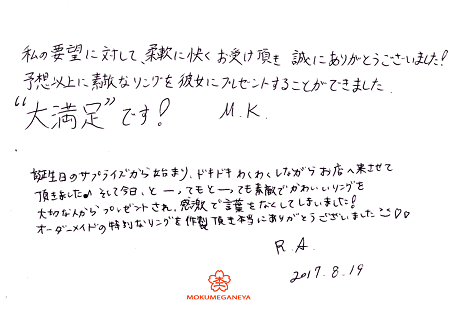 私の要望に対して、柔軟に快くお受け頂き 誠にありがとうございました!
予想以上に素敵なリングを彼女にプレゼントすることができました.
“大満足”です! M.K.
誕生日のサプライズから始まり、ドキドキわくわくしながらお店へ来させて
頂きました♪ そして今日、とーってもとーっても素敵でかわいいリングを
大切な人からプレゼントされ、感激で言葉をなくしてしまいました!
オーダーメイドの特別なリングを作製頂き本当にありがとうございました☺♡♡
R.A.
2017.8.19
MOKUMEGANEYA